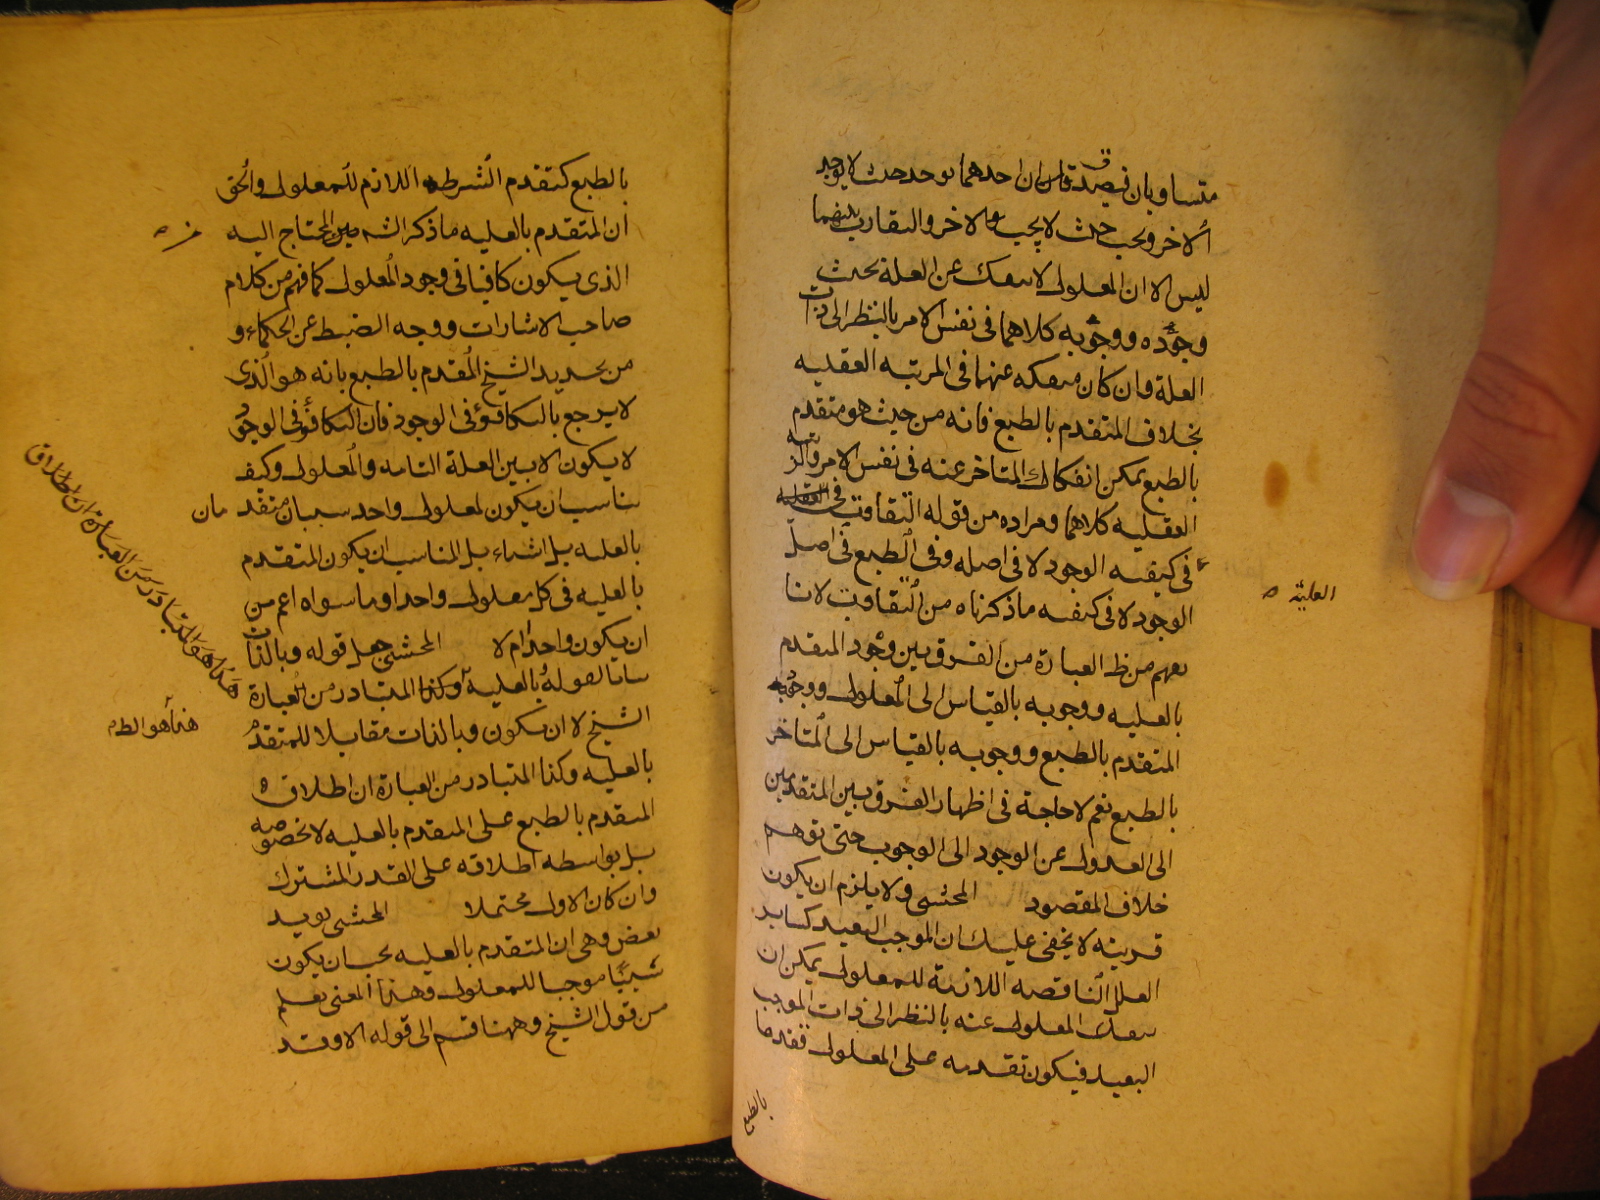 متساويان فيصدق ان احدهما يوجد حيث لا يوجد
الاخر ويجب حيث لا يجب الاخر والتقارب بينهما
ليس الا ان المعلول لا ينفك عن العلة بحيث
وجوده ووجوبه كلاهما في نفس الامر بالنظر الى ذات
العلة وان كان منفكه عنهما في المرتبه العقليه
بخلاف المتقدم بالطبع فانه من حيث هو متقدم
بالطبع يمكن انفكاك المتاخر عنه في نفس الامر والمرتبه
العقليه كلاهما ومراده من قوله التفاوت في العليّه
في كيفيه الوجود لا في اصله وفي الطبع في اصل
الوجود لا في كيفيه ما ذكرناه من التفاوت لانا
نفهم من ظ العبارة من الفرق بين وجود المتقدم
بالعليه ووجوبه بالقياس الى المعلول ووجود
المتقدم بالطبع ووجوبه بالقياس الى المتاخر
بالطبع نعم لا حاجة في اظهار الفرق بين المتقدمين
الى العدول عن الوجود الى الوجوب حتى توهم
خلاف المقصود المحشي ولا يلزم ان يكون
قرينه لا يخفى عليك ان الموجب البعيد كساير
العلل الناقصه اللازمة للمعلول يمكن ان
ينفك المعلول عنه بالنظر الى ذات الموجب
البعيد فيكون تقدمه على المعلول تقدما
بالطبع
بالطبع كتقدم الشرط اللازم للمعلول والحق
ان المتقدم بالعليه ما ذكر الشه من المحتاج اليه
الذي يكون كافيا في وجود المعلول كما فهم من كلام
صاحب الاشارات ووجه الضبط عن الحكماء و
من تحديد الشيخ المقدم بالطبع بانه هو الذي
لا يرجع بالتكافؤ في الوجود فان التكافؤ في الوجود
لا يكون الا بين العلة التامه والمعلول وكيف
يناسب ان يكون لمعلول واحد سببان متقدمان
بالعليه بل اشياء بل المناسب ان يكون المتقدم
بالعليه في كل معلول واحدا وما سواه اعم من
ان يكون واحدا ام لا المحشي جعل قوله وبالذات
بيانا لقوله بالعلية وكذا المتبادر من العبارة
الشيخ لا ان يكون وبالذات مقابلا للمتقدم
بالعليه وكذا المتبادر من العبارة ان اطلاق
المتقدم بالطبع على المتقدم بالعليه لا بخصوصه
بل بواسطه اطلاقه على القدر المشترك
وان كان الاول محتملا المحشي يويد
بعض وهي ان المتقدم بالعليه يجب ان يكون
شيئا موجبا للمعلول وهذا المعنى يعلم
من قول الشيخ وههنا قسم الى قوله الا وقد
هذا هو المتبادر من العبارة ان اطلاق
هذا هو الظ م